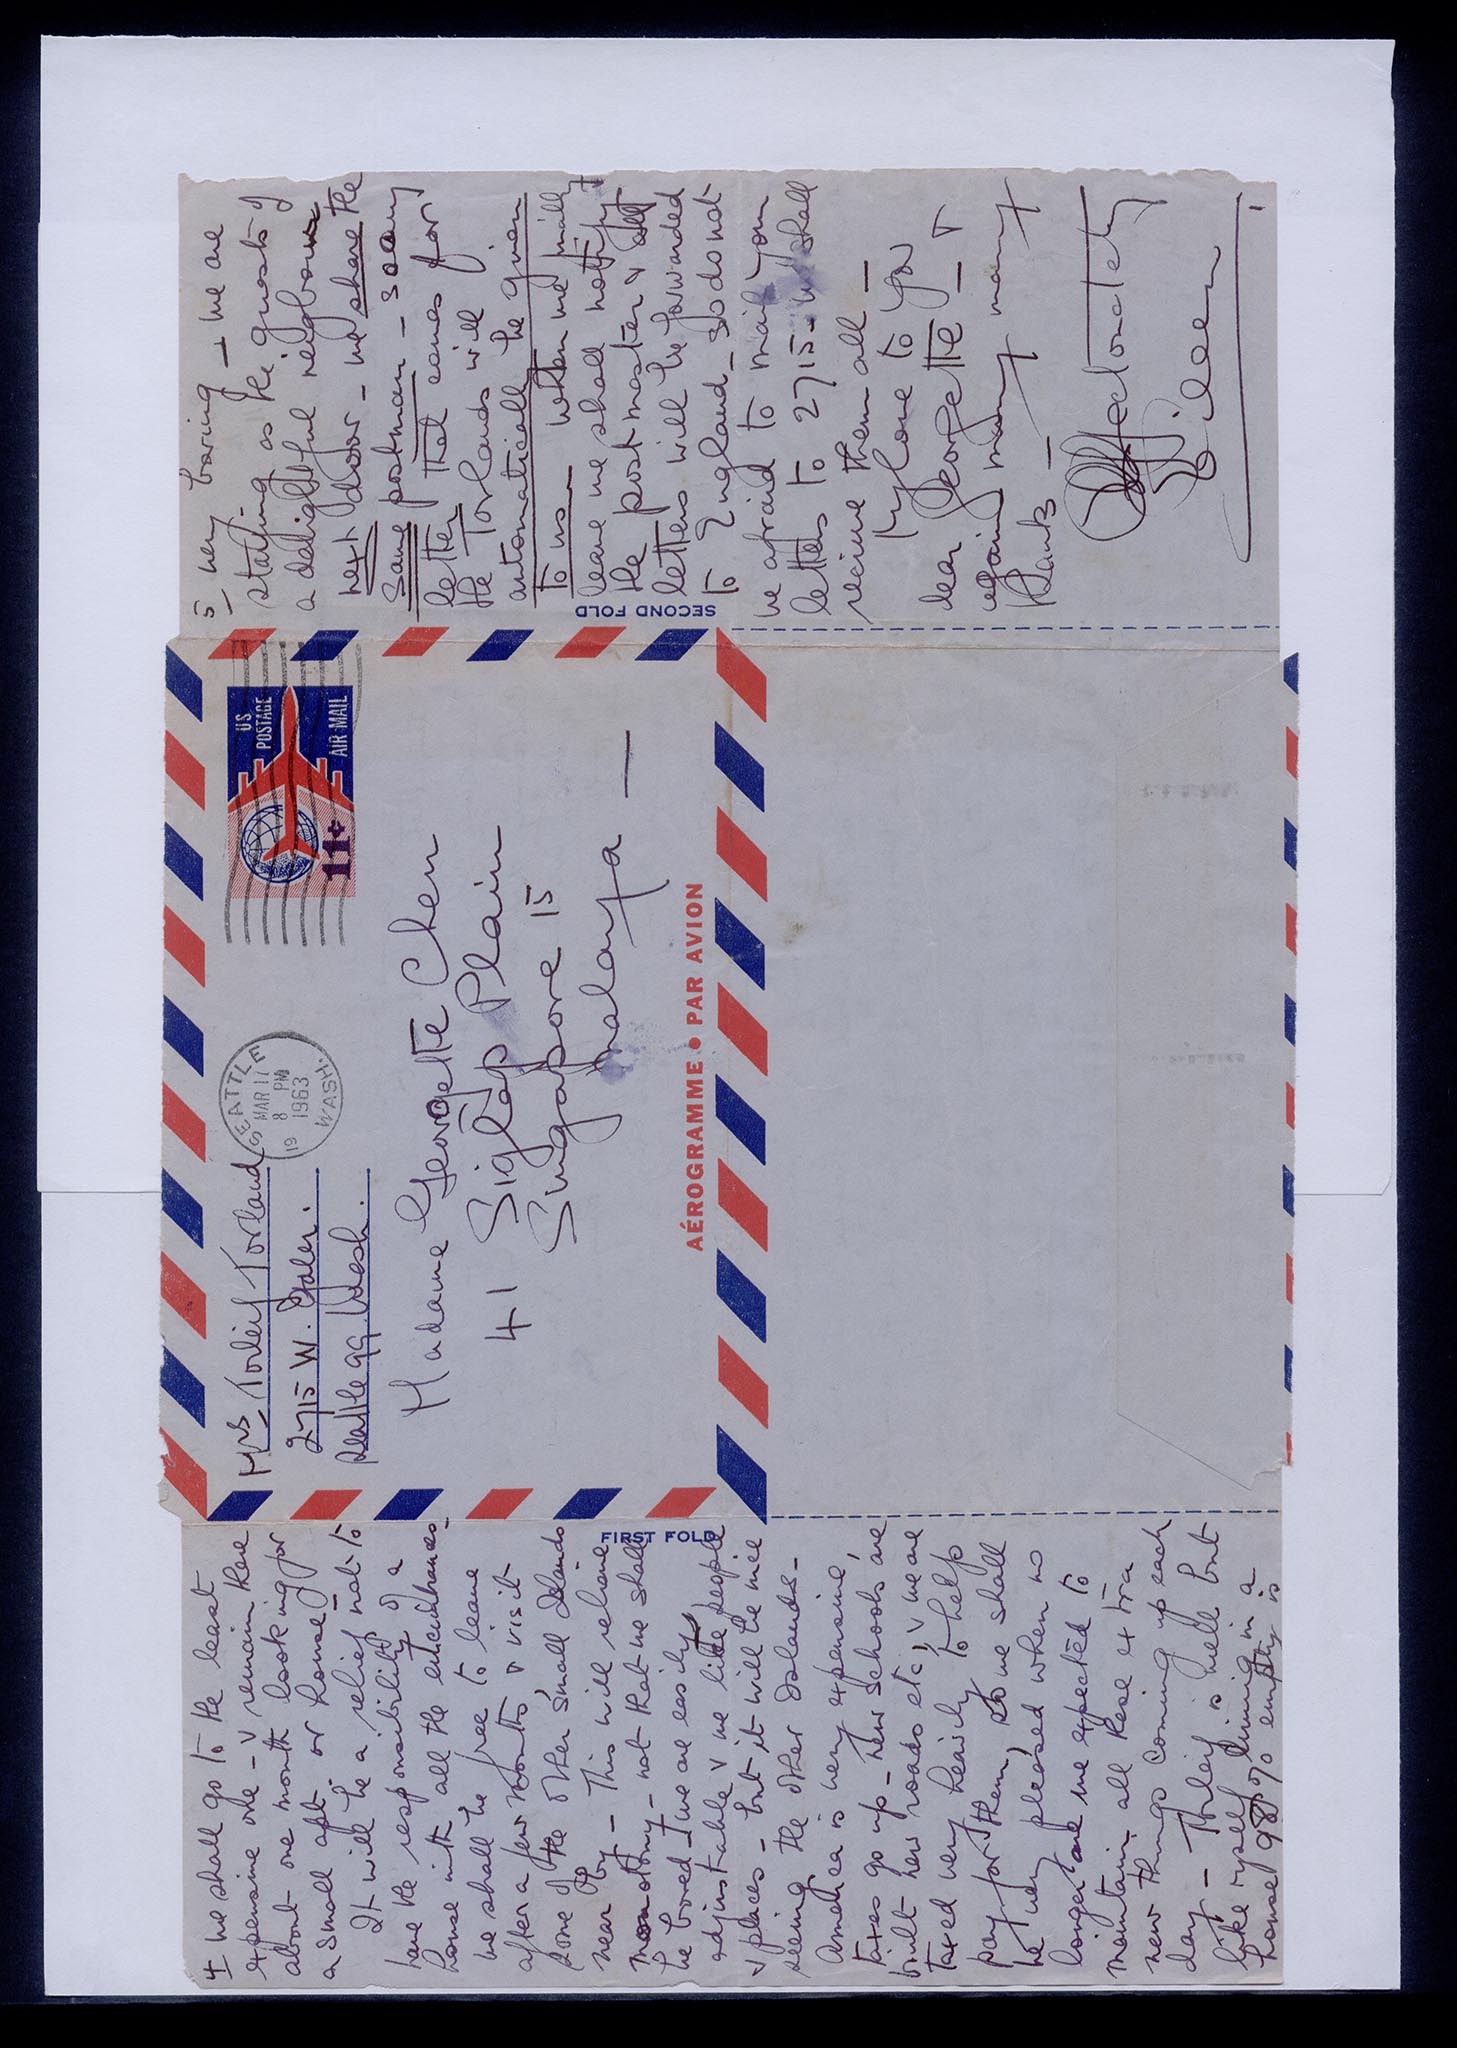 4 we shall go to the least
expensive one - & remain there
about one month looking for
a small apt. or house
It will be a relief not to
have the responsibility of a
house with all the encumbrances -
we shall be free to leave
after a few months & visit
some of the other small Islands
near by - This will relieve
monotony - not that we shall
be bored - we are easily
adjustable & we like people
& places - but it will be nice
seeing the other Islands -
America is very expensive,
taxes go up - new schools are
built new roads etc, & we are
taxed very heavily to help
pay for them, so we shall
be very pleased when no
longer are we expected to
maintain all these extra
new things coming up each
day - Thorleif is well but
like myself living in a
house 98% empty is
FIRST FOLD
Mrs Torleif Torland
2715 W. Galer.
Seattle 99. Wash.
SEATTLE
MAR 17
8 PM
1963
19
WASH.
US
POSTAGE
11¢
AIR MAIL
Madame Georgette Chen
41 Siglap Plain
Singapore 15
Malaya —
AÉROGRAMME • PAR AVION
SECOND FOLD
5 very boring — we are
staying as the guests of
a delightful neighbour
next door - we share the
same postman - so any
letter that comes for
the Torlands will
automatically be given
to us - when we
leave we shall notify
the postmaster & all
letters will be forwarded
to England - so do not
be afraid to mail your
letters to 2715 - we shall
receive them all -
My love to you
dear Georgette - &
again many many
thanks -
Affectionately
Eileen